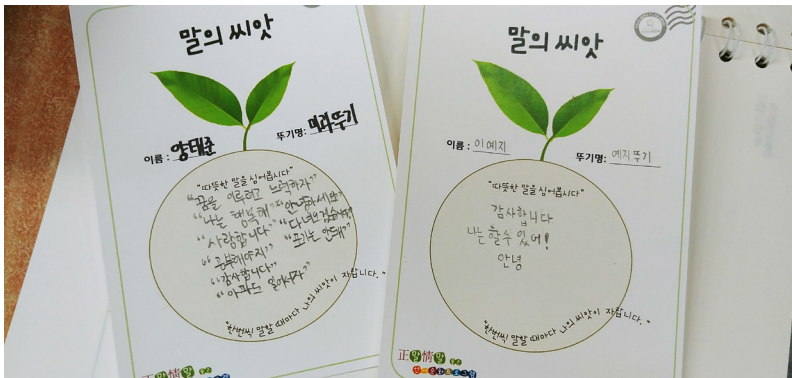 말의 씨앗
이름: 양태준
뚜기명: 미라뚜기
"따뜻한 말을 심어봅시다"
"꿈을 이루려고 노력하자"
"나는 행복해" "안녕하세요"
"사랑합니다" "다녀오겠습니다"
"공부해야지" "포기는 안돼"
"감사합니다"
"아파도 일어서자"
"한번씩 말할 때마다 나의 씨앗이 자랍니다."
正말情말
말의 씨앗
이름 : 이예지
뚜기명: 예지뚜기
"따뜻한 말을 심어봅시다"
감사합니다
나는 할수 있어!
안녕
"한번씩 말할 때마다 나의 씨앗이 자랍니다."
正말情말